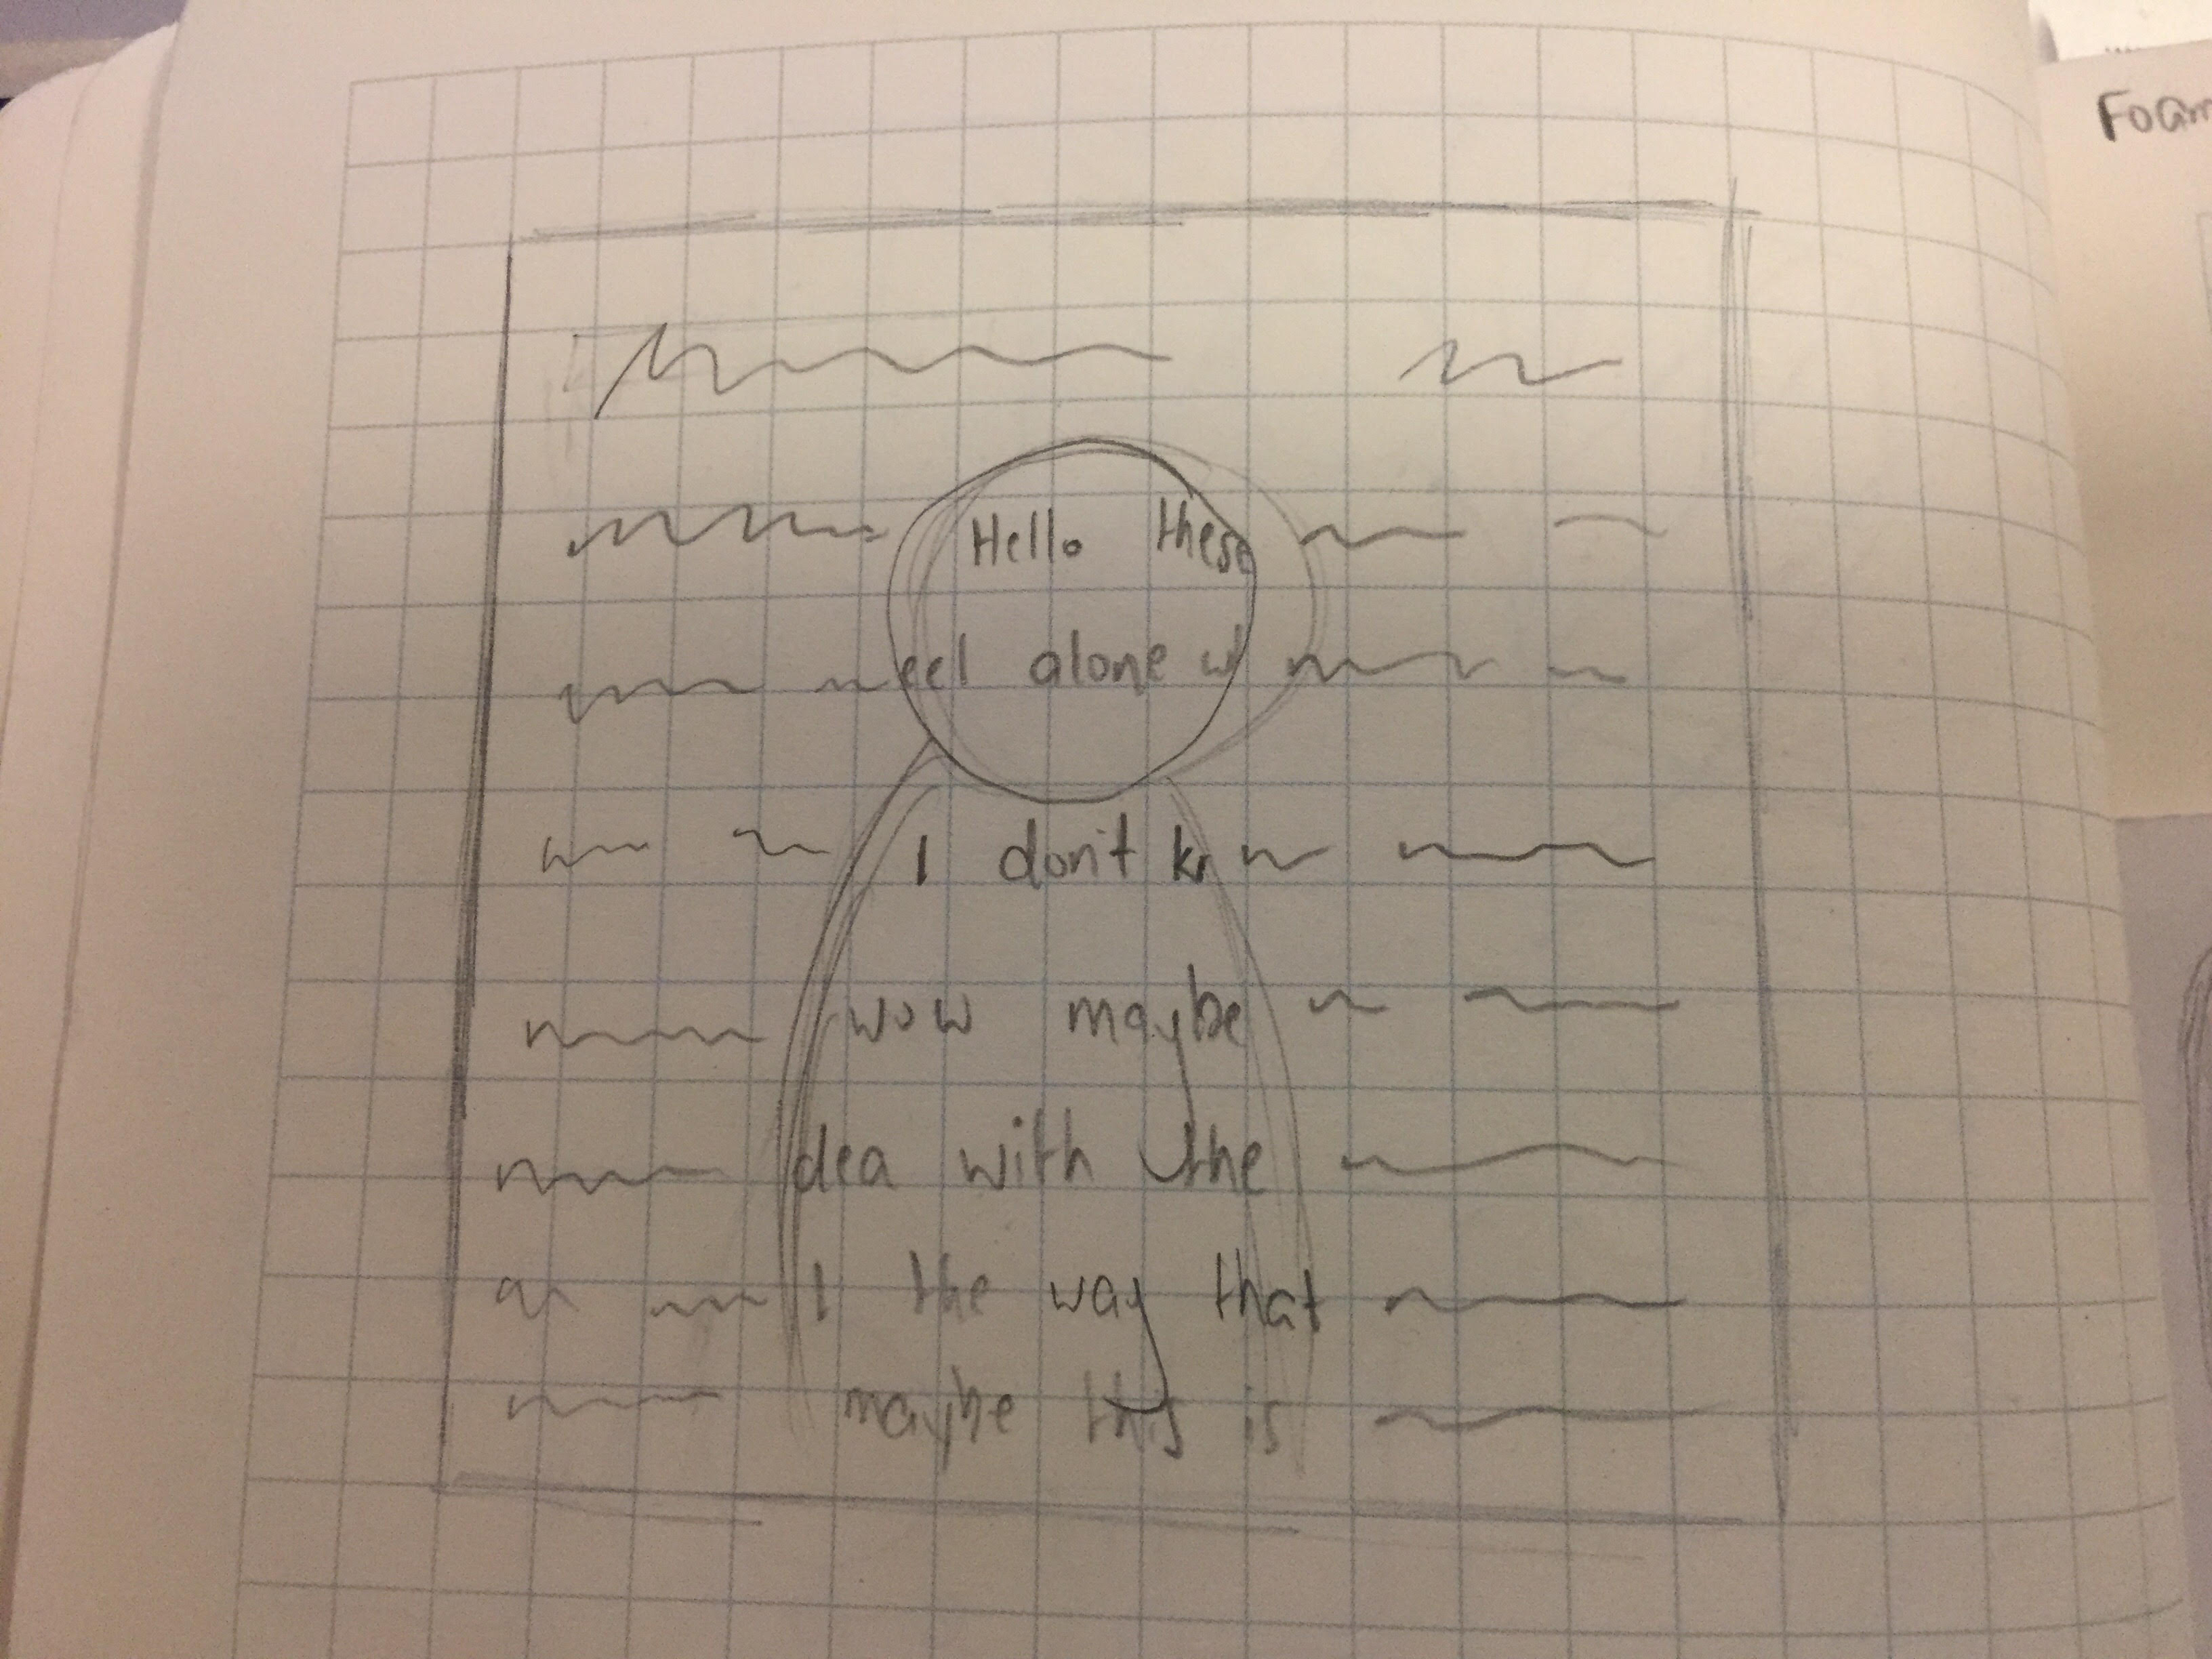 Foam
Hello these
eel alone w
I don't kn
wow maybe
dea with the
I the way that
maybe this is